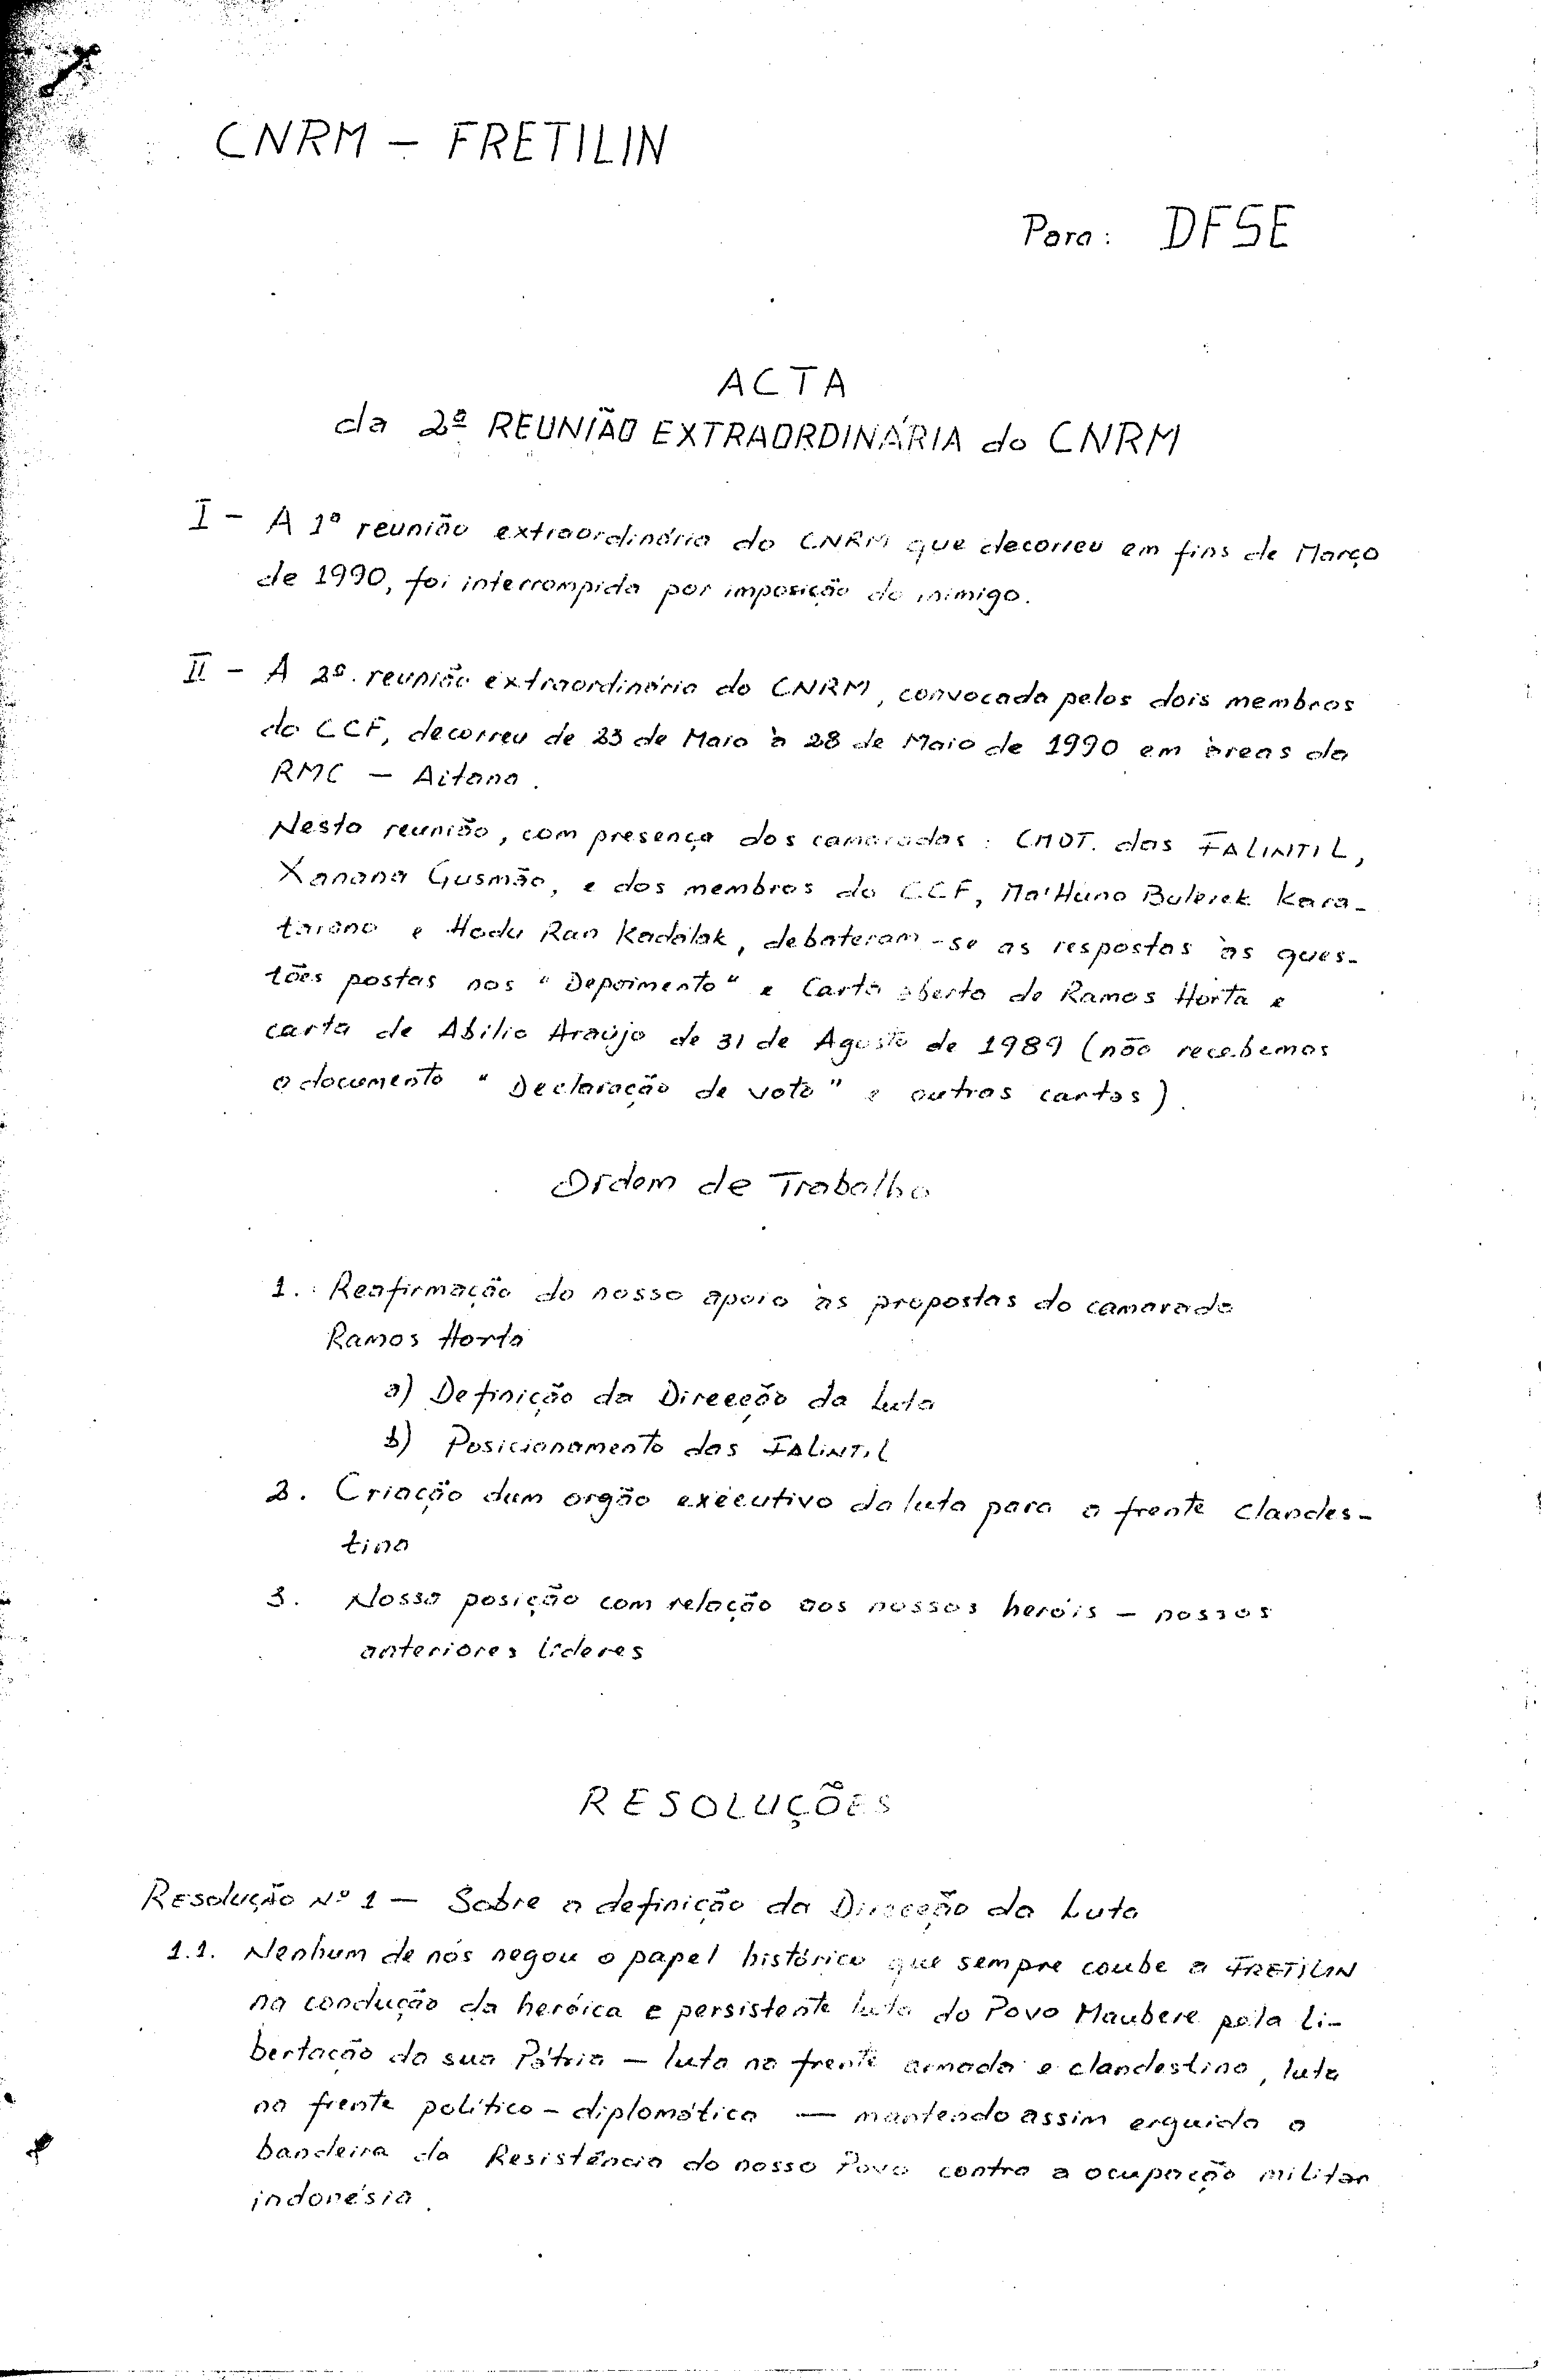 CNRM – FRETILIN
Para: DFSE
ACTA
da 2ª REUNIÃO EXTRAORDINÁRIA do CNRM
I – A 1ª reunião extraordinária do CNRM que decorreu em fins de Março
de 1990, foi interrompida por imposição do inimigo.
II – A 2ª. reunião extraordinária do CNRM, convocada pelos dois membros
do CCF, decorreu de 23 de Maio à 28 de Maio de 1990 em àreas da
RMC – Aitana.
Nesta reunião, com presença dos camaradas: CMDT. das FALINTIL,
Xanana Gusmão, e dos membros do CCF, Ma'Huno Bulerek Kara-
taiano e Hodu Ran Kadalak, debateram-se as respostas às ques-
tões postas nos "Depoimento" e Carta aberta de Ramos Horta e
carta de Abílio Araújo de 31 de Agosto de 1989 (não recebemos
o documento "Declaração de voto" e outras cartas).
Ordem de Trabalho
1. Reafirmação do nosso apoio às propostas do camarada
Ramos Horta
a) Definição da Direcção da Luta
b) Posicionamento das FALINTIL
2. Criação dum orgão executivo da luta para a frente clandes-
tina
3. Nossa posição com relação aos nossos heróis – nossos
anteriores líderes
RESOLUÇÕES
Resolução Nº 1 – Sobre a definição da Direcção da Luta
1.1. Nenhum de nós negou o papel histórico que sempre coube a FRETILIN
na condução da heróica e persistente luta do Povo Maubere pela li-
bertação da sua Pátria – luta na frente armada e clandestina, luta
na frente político-diplomática — mantendo assim erguida a
bandeira da Resistência do nosso Povo contra a ocupação militar
indonésia.